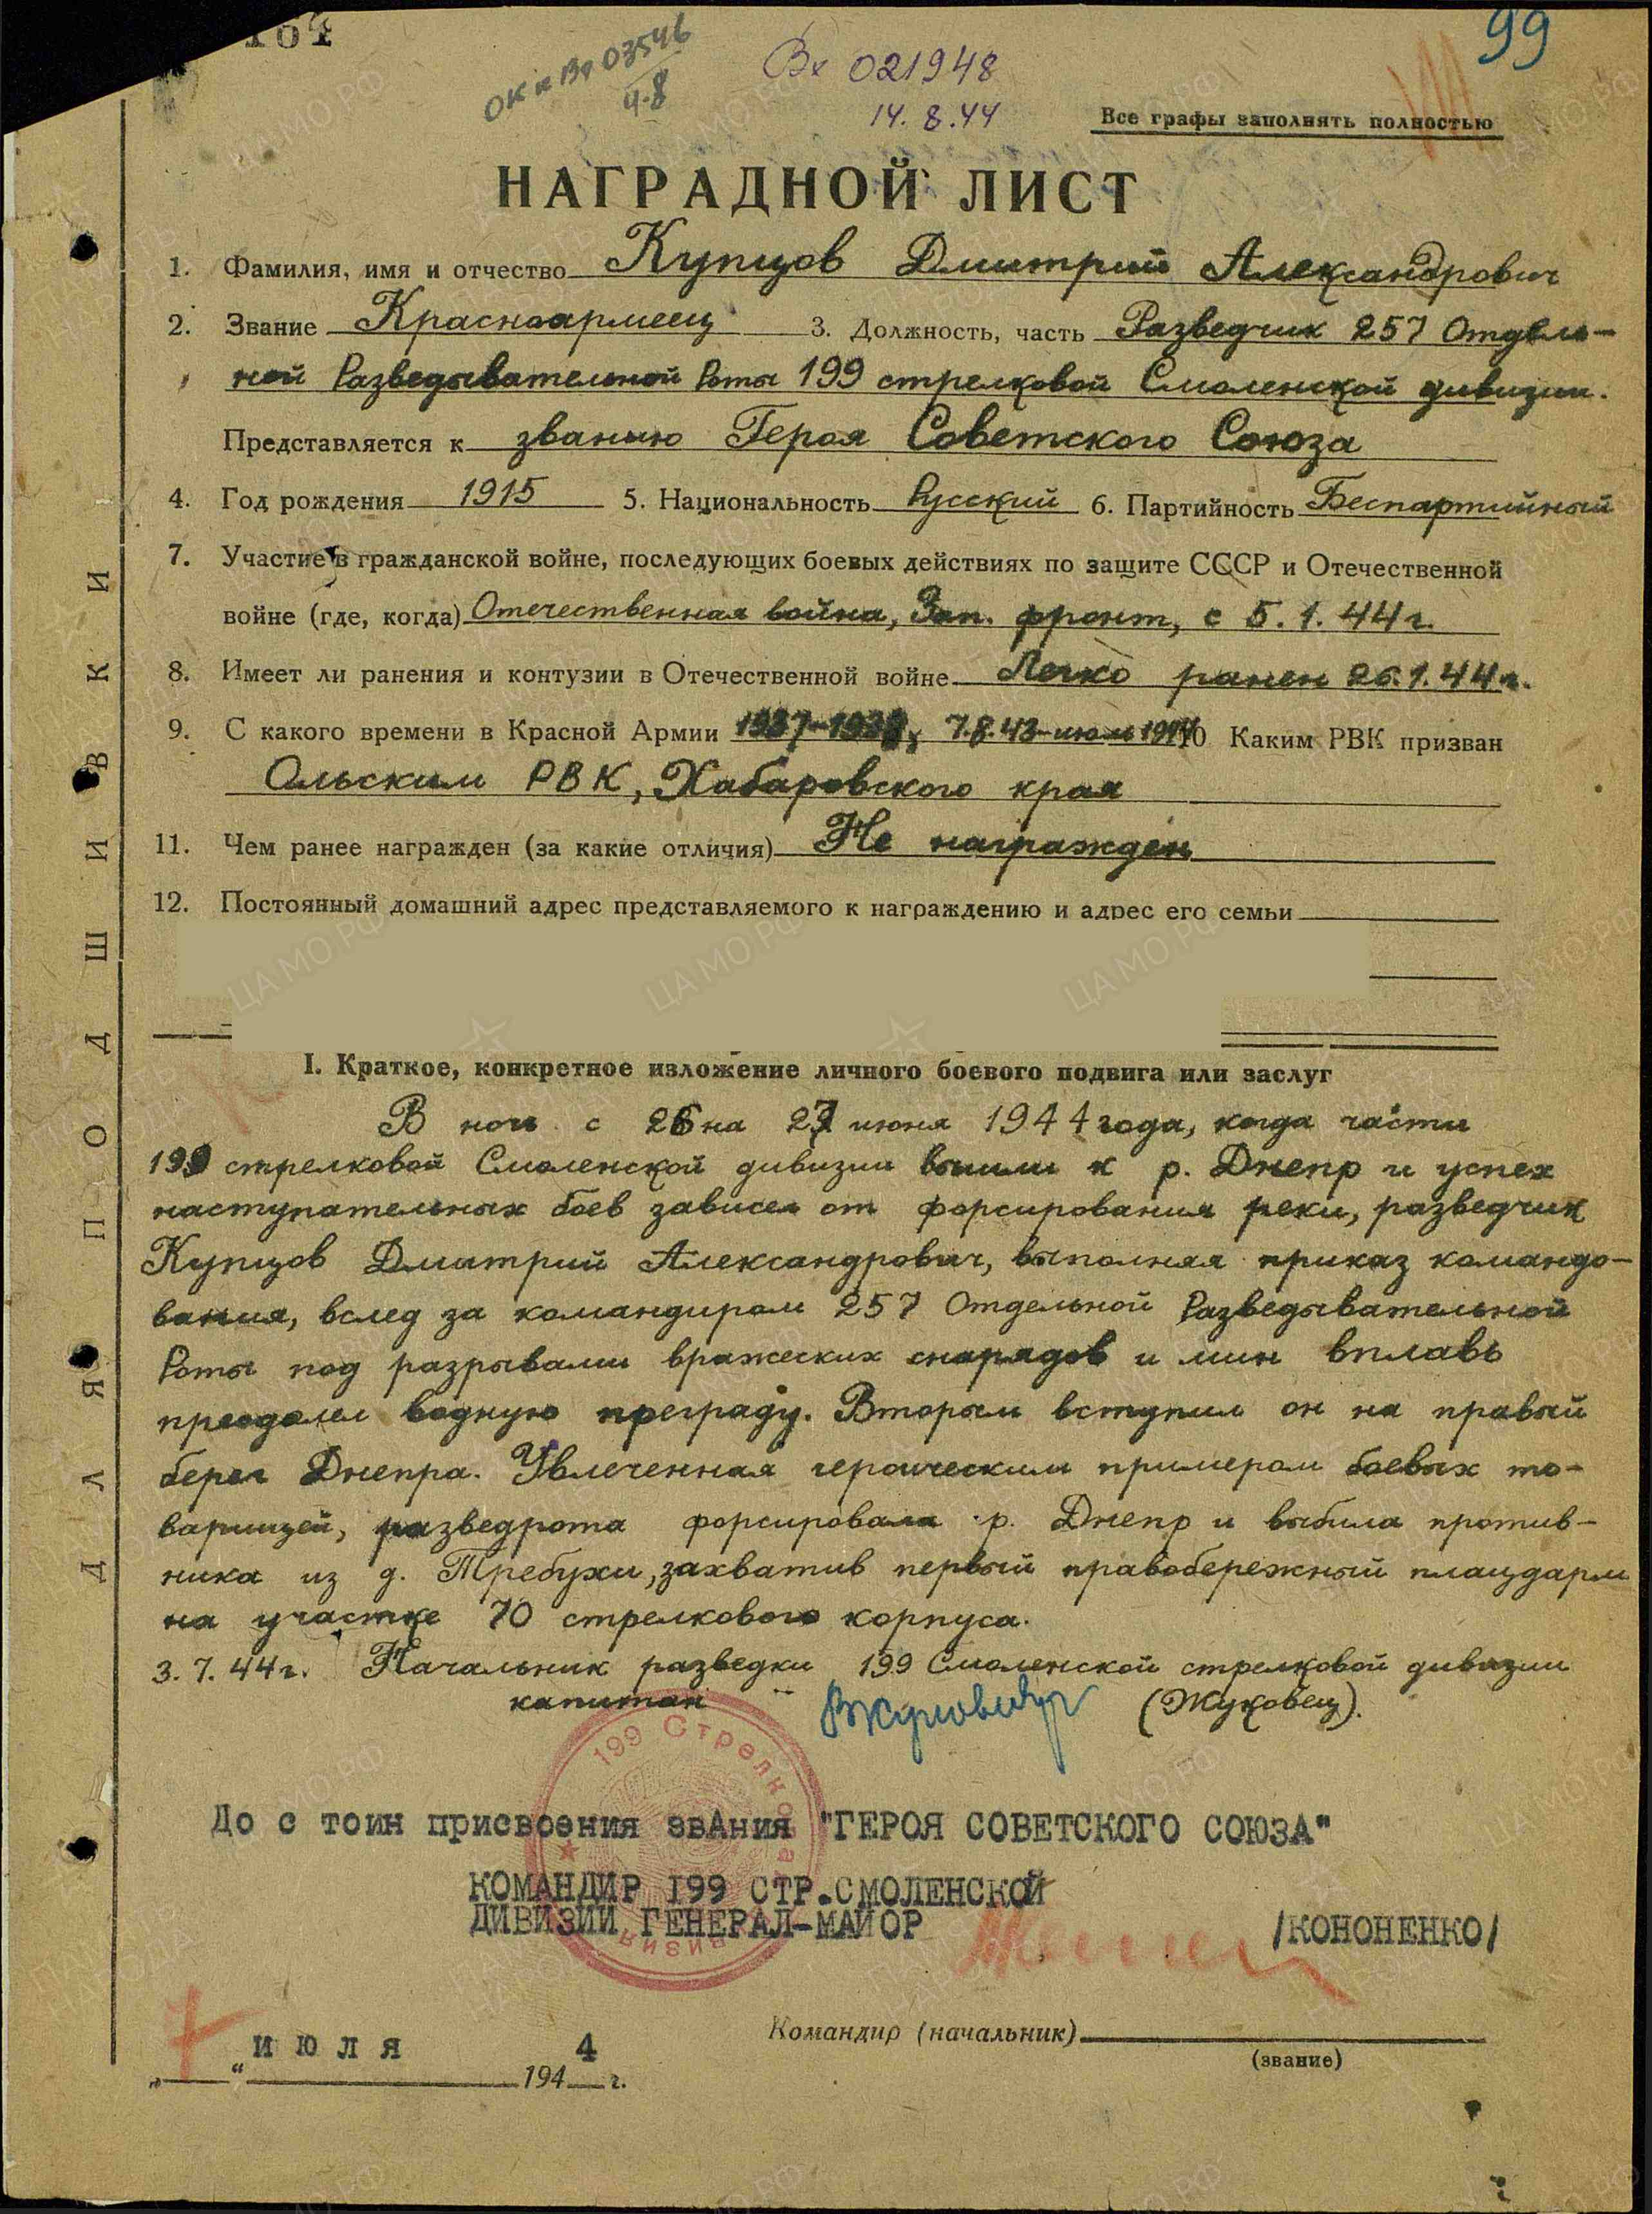 164
99
ОК и Вд 03546
4.8
Вх 021948
14.8.44
Все графы заполнять полностью
НАГРАДНОЙ ЛИСТ
1. Фамилия, имя и отчество Купцов Дмитрий Александрович
2. Звание Красноармеец 3. Должность, часть Разведчик 257 Отдель-
ной Разведывательной Роты 199 стрелковой Смоленской дивизии.
Представляется к званию Героя Советского Союза
4. Год рождения 1915 5. Национальность Русский 6. Партийность Беспартийный
7. Участие в гражданской войне, последующих боевых действиях по защите СССР и Отечественной
войне (где, когда) Отечественная война, Зап. фронт, с 5.1.44г.
8. Имеет ли ранения и контузии в Отечественной войне Легко ранен 26.1.44г.
9. С какого времени в Красной Армии 1937-1938, 7.8.43-июль 1944 10 Каким РВК призван
Ольским РВК, Хабаровского края
11. Чем ранее награжден (за какие отличия) Не награжден
12. Постоянный домашний адрес представляемого к награждению и адрес его семьи
I. Краткое, конкретное изложение личного боевого подвига или заслуг
В ночь с 26 на 27 июня 1944 года, когда части
199 стрелковой Смоленской дивизии вышли к р. Днепр и успех
наступательных боев зависел от форсирования реки, разведчик
Купцов Дмитрий Александрович, выполняя приказ командо-
вания, вслед за командиром 257 Отдельной Разведывательной
Роты под разрывами вражеских снарядов и мин вплавь
преодолел водную преграду. Вторым вступил он на правый
берег Днепра. Увлеченная героическим примером боевых то-
варищей, разведрота форсировала р. Днепр и выбила против-
ника из д. Требухи, захватив первый правобережный плацдарм
на участке 70 стрелкового корпуса.
3.7.44г. Начальник разведки 199 Смоленской стрелковой дивизии
капитан (Жуковец).
199 Стрелковая
дивизия
До с тоин присвоения звАния "ГЕРОЯ СОВЕТСКОГО СОЮЗА"
КОМАНДИР 199 СТР.СМОЛЕНСКОЙ
ДИВИЗИИ ГЕНЕРАЛ-МАЙОР /КОНОНЕНКО/
Командир (начальник)
(звание)
„7“ июля 1944 г.
ДЛЯ ПОДШИВКИ